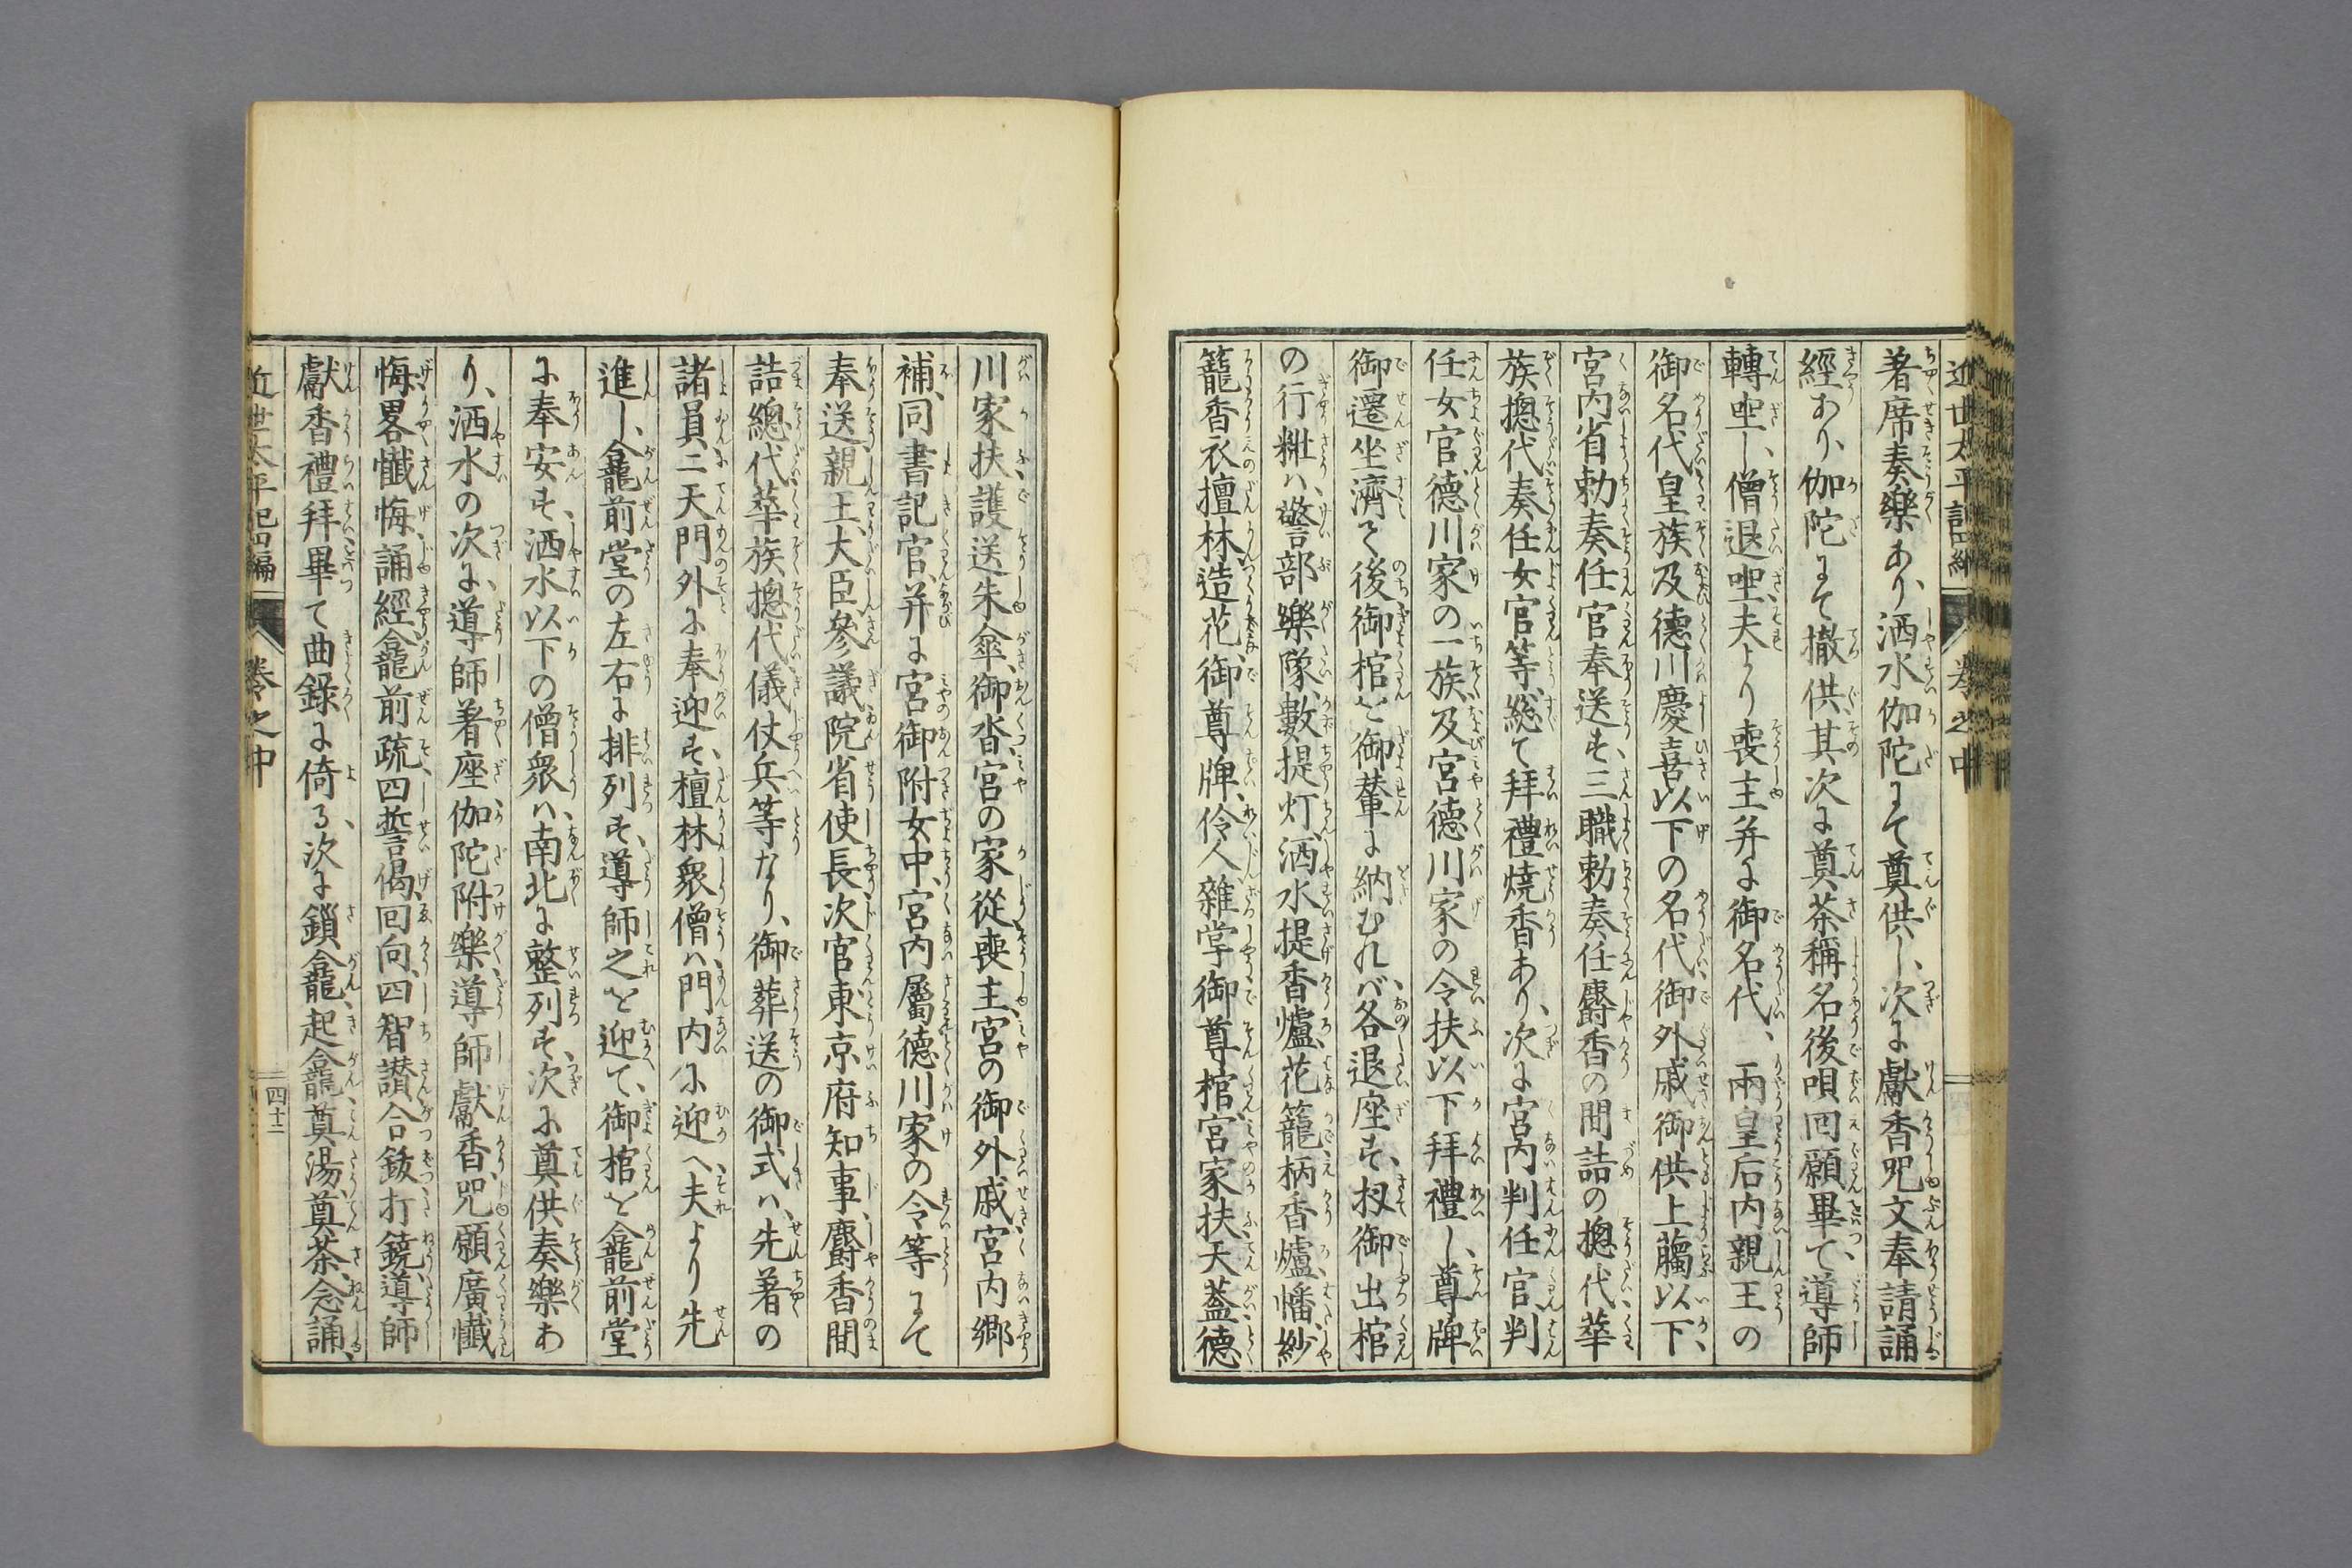 著席奏樂あり、洒水伽陀にて奠供し、次に獻香咒文奉請誦
經あり、伽陀にて撤供其次に奠茶稱名後唄回願畢て導師
轉坐し、僧退坐、夫より喪主并に御名代、兩皇后内親王の
御名代皇族及德川慶喜以下の名代御外戚御供上﨟以下、
宮内省勅奏任官奉送す、三職勅奏任麝香の間詰の摠代華
族摠代奏任女官等、総て拜禮燒香あり、次に宮内判任官、判
任女官、德川家の一族、及宮德川家の令扶以下拜禮し、尊牌
御遷坐濟て後御棺を御輦に納むれバ、各退座す、扨御出棺
の行粧ハ、警部樂隊、數提灯、洒水提香爐、花籠柄香爐、幡紗
籠香衣檀林造花、御尊牌、伶人雜掌御尊棺宮家扶天蓋德
川家扶、護送朱傘、御沓宮の家從喪主、宮の御外戚宮内郷
補、同書記官、并に宮御附女中、宮内屬德川家の令等にて
奉送、親王、大臣參議院省使長次官東京府知事、麝香間
詰總代、華族摠代儀仗兵等なり、御葬送の御式ハ、先著の
諸員、二天門外に奉迎す、檀林衆僧ハ門内に迎へ夫より先
進し、龕前堂の左右に排列す、導師之を迎て、御棺を龕前堂
に奉安す、洒水以下の僧衆ハ、南北に整列す、次に奠供奏樂あ
り、洒水の次に、導師著座伽陀附樂、導師獻香、咒願廣懺
悔畧懺悔、誦經龕前疏四誓偈、回向、四智讃合鈸打鐃、導師
獻香禮拜畢て曲錄に倚る、次に鎖龕、起龕、奠湯、奠茶、念誦、
近世太平記四編
卷之中
四十二